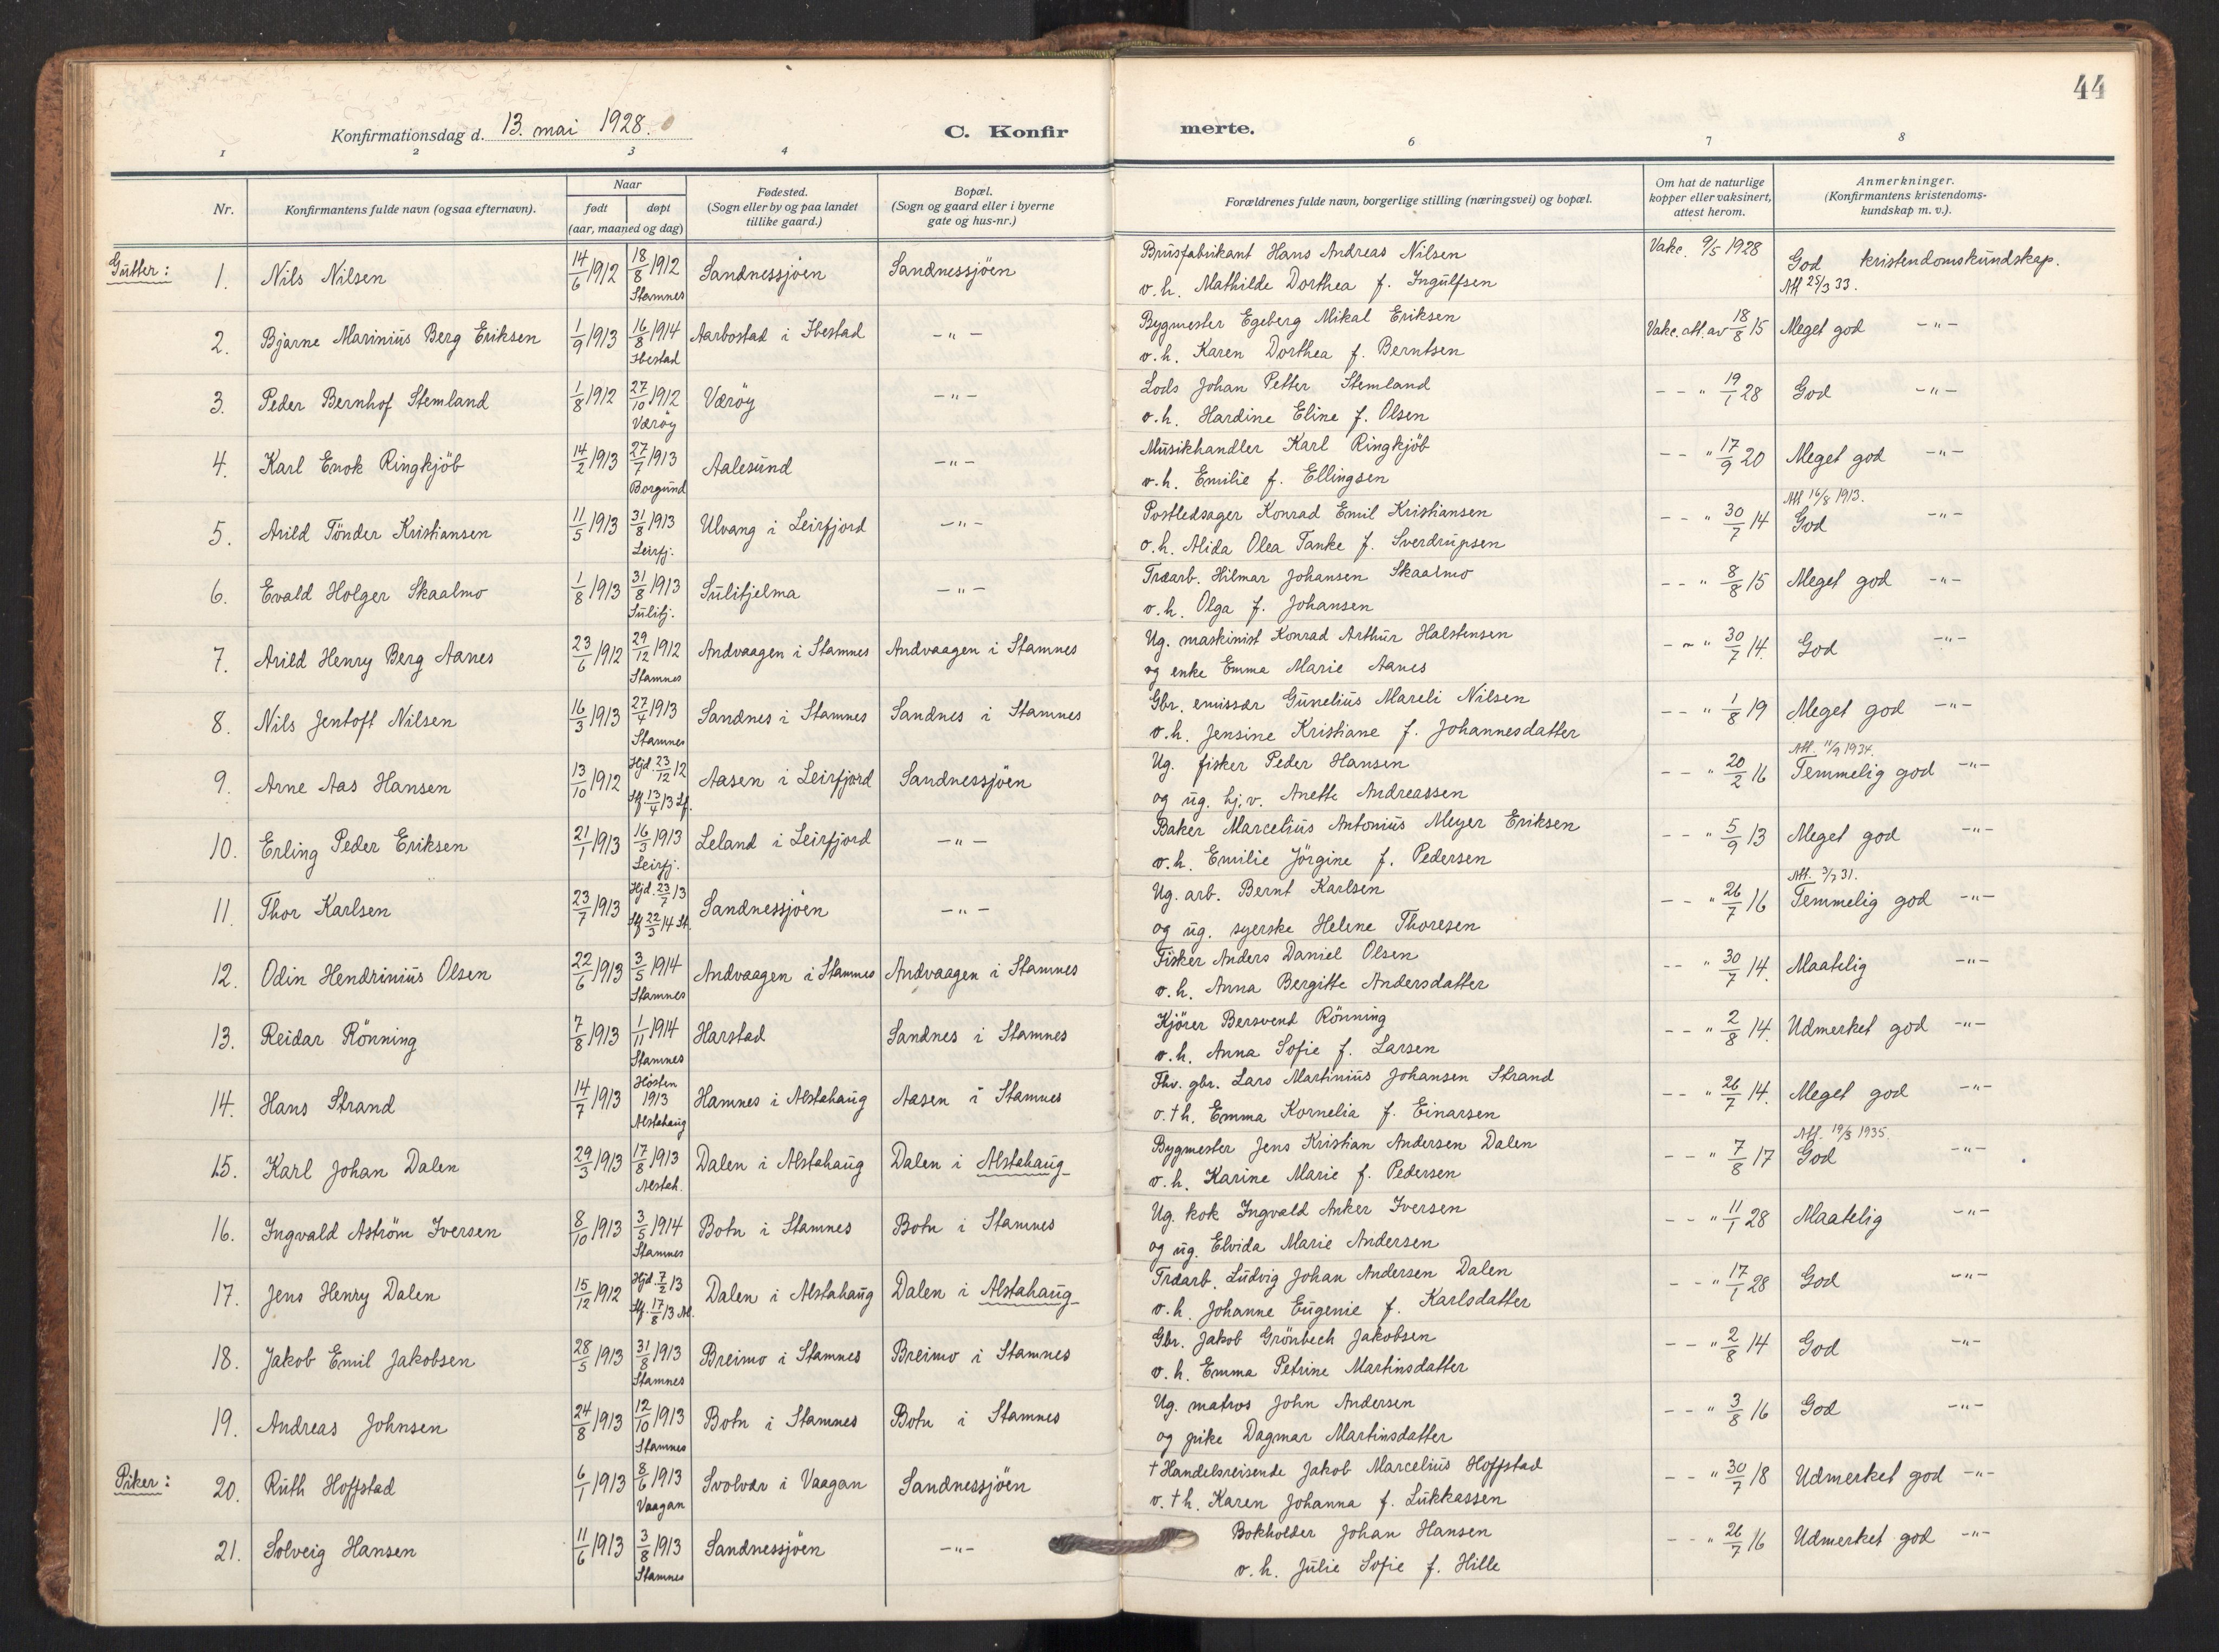 44
Konfirmationsdag d. 13. mai 1928.
C. Konfirmerte.
1 2 3 4 6 7 8
Nr.
Konfirmantens fulde navn (ogsaa efternavn).
Naar
født døpt
(aar, maaned og dag)
Fødested.
(Sogn eller by og paa landet
tillike gaard.)
Bopæl.
(Sogn og gaard eller i byerne
gate og hus-nr.)
Forældrenes fulde navn, borgerlige stilling (næringsvei) og bopæl.
Om hat de naturlige
kopper eller vaksinert,
attest herom.
Anmerkninger.
(Konfirmantens kristendoms-
kundskap m. v.).
Gutter:
1. Nils Nilsen 14/6 1912 18/8 1912 Stamnes Sandnessjöen Sandnessjöen
Brusfabrikant Hans Andreas Nilsen
o. h. Mathilde Dorthea f. Ingulfsen
Vakc. 9/5 1928 God kristendomskundskap.
Att 25/3 33.
2. Bjarne Marinius Berg Eriksen 1/9 1913 16/8 1914 Ibestad Aarbostad i Ibestad -"-
Bygmester Egeberg Mikal Eriksen
o. h. Karen Dorthea f. Berntsen
Vakc. att. av 18/8 15 Meget god -"-
3. Peder Bernhof Stemland 1/8 1912 27/10 1912 Væröy Væröy -"-
Lods Johan Petter Stemland
o. h. Hardine Eline f. Olsen
- - " 19/1 28 God -"-
4. Karl Enok Ringkjöb 14/2 1913 27/7 1913 Borgund Aalesund -"-
Musikhandler Karl Ringkjöb
o. h. Emilie f. Ellingsen
- - " 17/9 20 Meget god -"-
5. Arild Tönder Kristiansen 11/5 1913 31/8 1913 Leirfj. Ulvang i Leirfjord -"-
Postledsager Konrad Emil Kristiansen
o. h. Alida Olea Tanke f. Sverdrupsen
- - " 30/7 14 Att 16/8 1913. God -"-
6. Evald Holger Skaalmo 1/8 1913 31/8 1913 Sulitj. Sulitjelma -"-
Træarb. Hilmar Johansen Skaalmo
o. h. Olga f. Johansen
- - " 8/8 15 Meget god -"-
7. Arild Henry Berg Aanes 23/6 1912 29/12 1912 Stamnes Andvaagen i Stamnes Andvaagen i Stamnes
Ug. maskinist Konrad Arthur Halstensen
og enke Emma Marie Aanes
- - " 30/7 14. God -"-
8. Nils Jentoft Nilsen 16/3 1913 27/4 1913 Stamnes Sandnes i Stamnes Sandnes i Stamnes
Gbr. emissær Gunelius Mareli Nilsen
o. h. Jensine Kristiane f. Johannesdatter
- - " 1/8 19 Meget god -"-
9. Arne Aas Hansen 13/10 1912 Hjd. 23/12 12 Stf. 13/4 13 Lf. Aasen i Leirfjord Sandnessjöen
Ug. fisker Peder Hansen
og ug. hj.v. Anette Andreassen
- - " 20/2 16 Att. 11/9 1934. Temmelig god -"-
10. Erling Peder Eriksen 21/1 1913 16/3 1913 Leirfj. Leland i Leirfjord -"-
Baker Marcelius Antonius Meyer Eriksen
o. h. Emilie Jörgine f. Pedersen
- - " 5/9 13 Meget god -"-
11. Thor Karlsen 23/7 1913 Hjd. 23/7 13 Stf 22/3 14 St. Sandnessjöen -"-
Ug. arb. Bernt Karlsen
og ug. syerske Helene Thoresen
- - " 26/7 16 Att. 3/7 31. Temmelig god -"-
12. Odin Hendrinius Olsen 22/6 1913 3/5 1914 Stamnes Andvaagen i Stamnes Andvaagen i Stamnes
Fisker Anders Daniel Olsen
o. h. Anna Bergitte Andersdatter
- - " 30/7 14. Maatelig -"-
13. Reidar Rönning 7/8 1913 1/11 1914 Stamnes Harstad Sandnes i Stamnes
Kjörer Bersvend Rönning
o. h. Anna Sofie f. Larsen
- - " 2/8 14. Udmerket god -"-
14. Hans Strand 14/7 1913 Hösten 1913 Alstahaug Hamnes i Alstahaug Aasen i Stamnes
Fhv. gbr. Lars Martinius Johansen Strand
o. † h. Emma Kornelia f. Einarsen
- - " 26/7 14. Meget god -"-
15. Karl Johan Dalen 29/3 1913 17/8 1913 Alstah. Dalen i Alstahaug Dalen i Alstahaug
Bygmester Jens Kristian Andersen Dalen
o. h. Karine Marie f. Pedersen
- - " 7/8 17 Att. 19/3 1935. God -"-
16. Ingvald Aström Iversen 8/10 1913 3/5 1914 Stamnes Botn i Stamnes Botn i Stamnes
Ug. kok Ingvald Anker Iversen
og ug. Elvida Marie Andersen
- - " 11/1 28 Maatelig -"-
17. Jens Henry Dalen 15/12 1912 Hjd. 7/2 13 Stf. 17/8 13 Al. Dalen i Alstahaug Dalen i Alstahaug
Træarb. Ludvig Johan Andersen Dalen
o. h. Johanne Eugenie f. Karlsdatter
- - " 17/1 28 God -"-
18. Jakob Emil Jakobsen 28/5 1913 31/8 1913 Stamnes Breimo i Stamnes Breimo i Stamnes
Gbr. Jakob Grönbech Jakobsen
o. h. Emma Petrine Martinsdatter
- - " 2/8 14 God -"-
19. Andreas Johnsen 24/8 1913 12/10 1913 Stamnes Botn i Stamnes Botn i Stamnes
Ug. matros John Andersen
og pike Dagmar Martinsdatter
- - " 3/8 16 God -"-
Piker:
20. Ruth Hoffstad 6/1 1913 8/6 1913 Vaagan Svolvær i Vaagan Sandnessjöen
† Handelsreisende Jakob Marcelius Hoffstad
o. † h. Karen Johanna f. Lukkassen
- - " 30/7 18 Udmerket god -"-
21. Solveig Hansen 11/6 1913 3/8 1913 Stamnes Sandnessjöen -"-
Bokholder Johan Hansen
o. h. Julie Sofie f. Hille
- - " 26/7 16 Udmerket god -"-